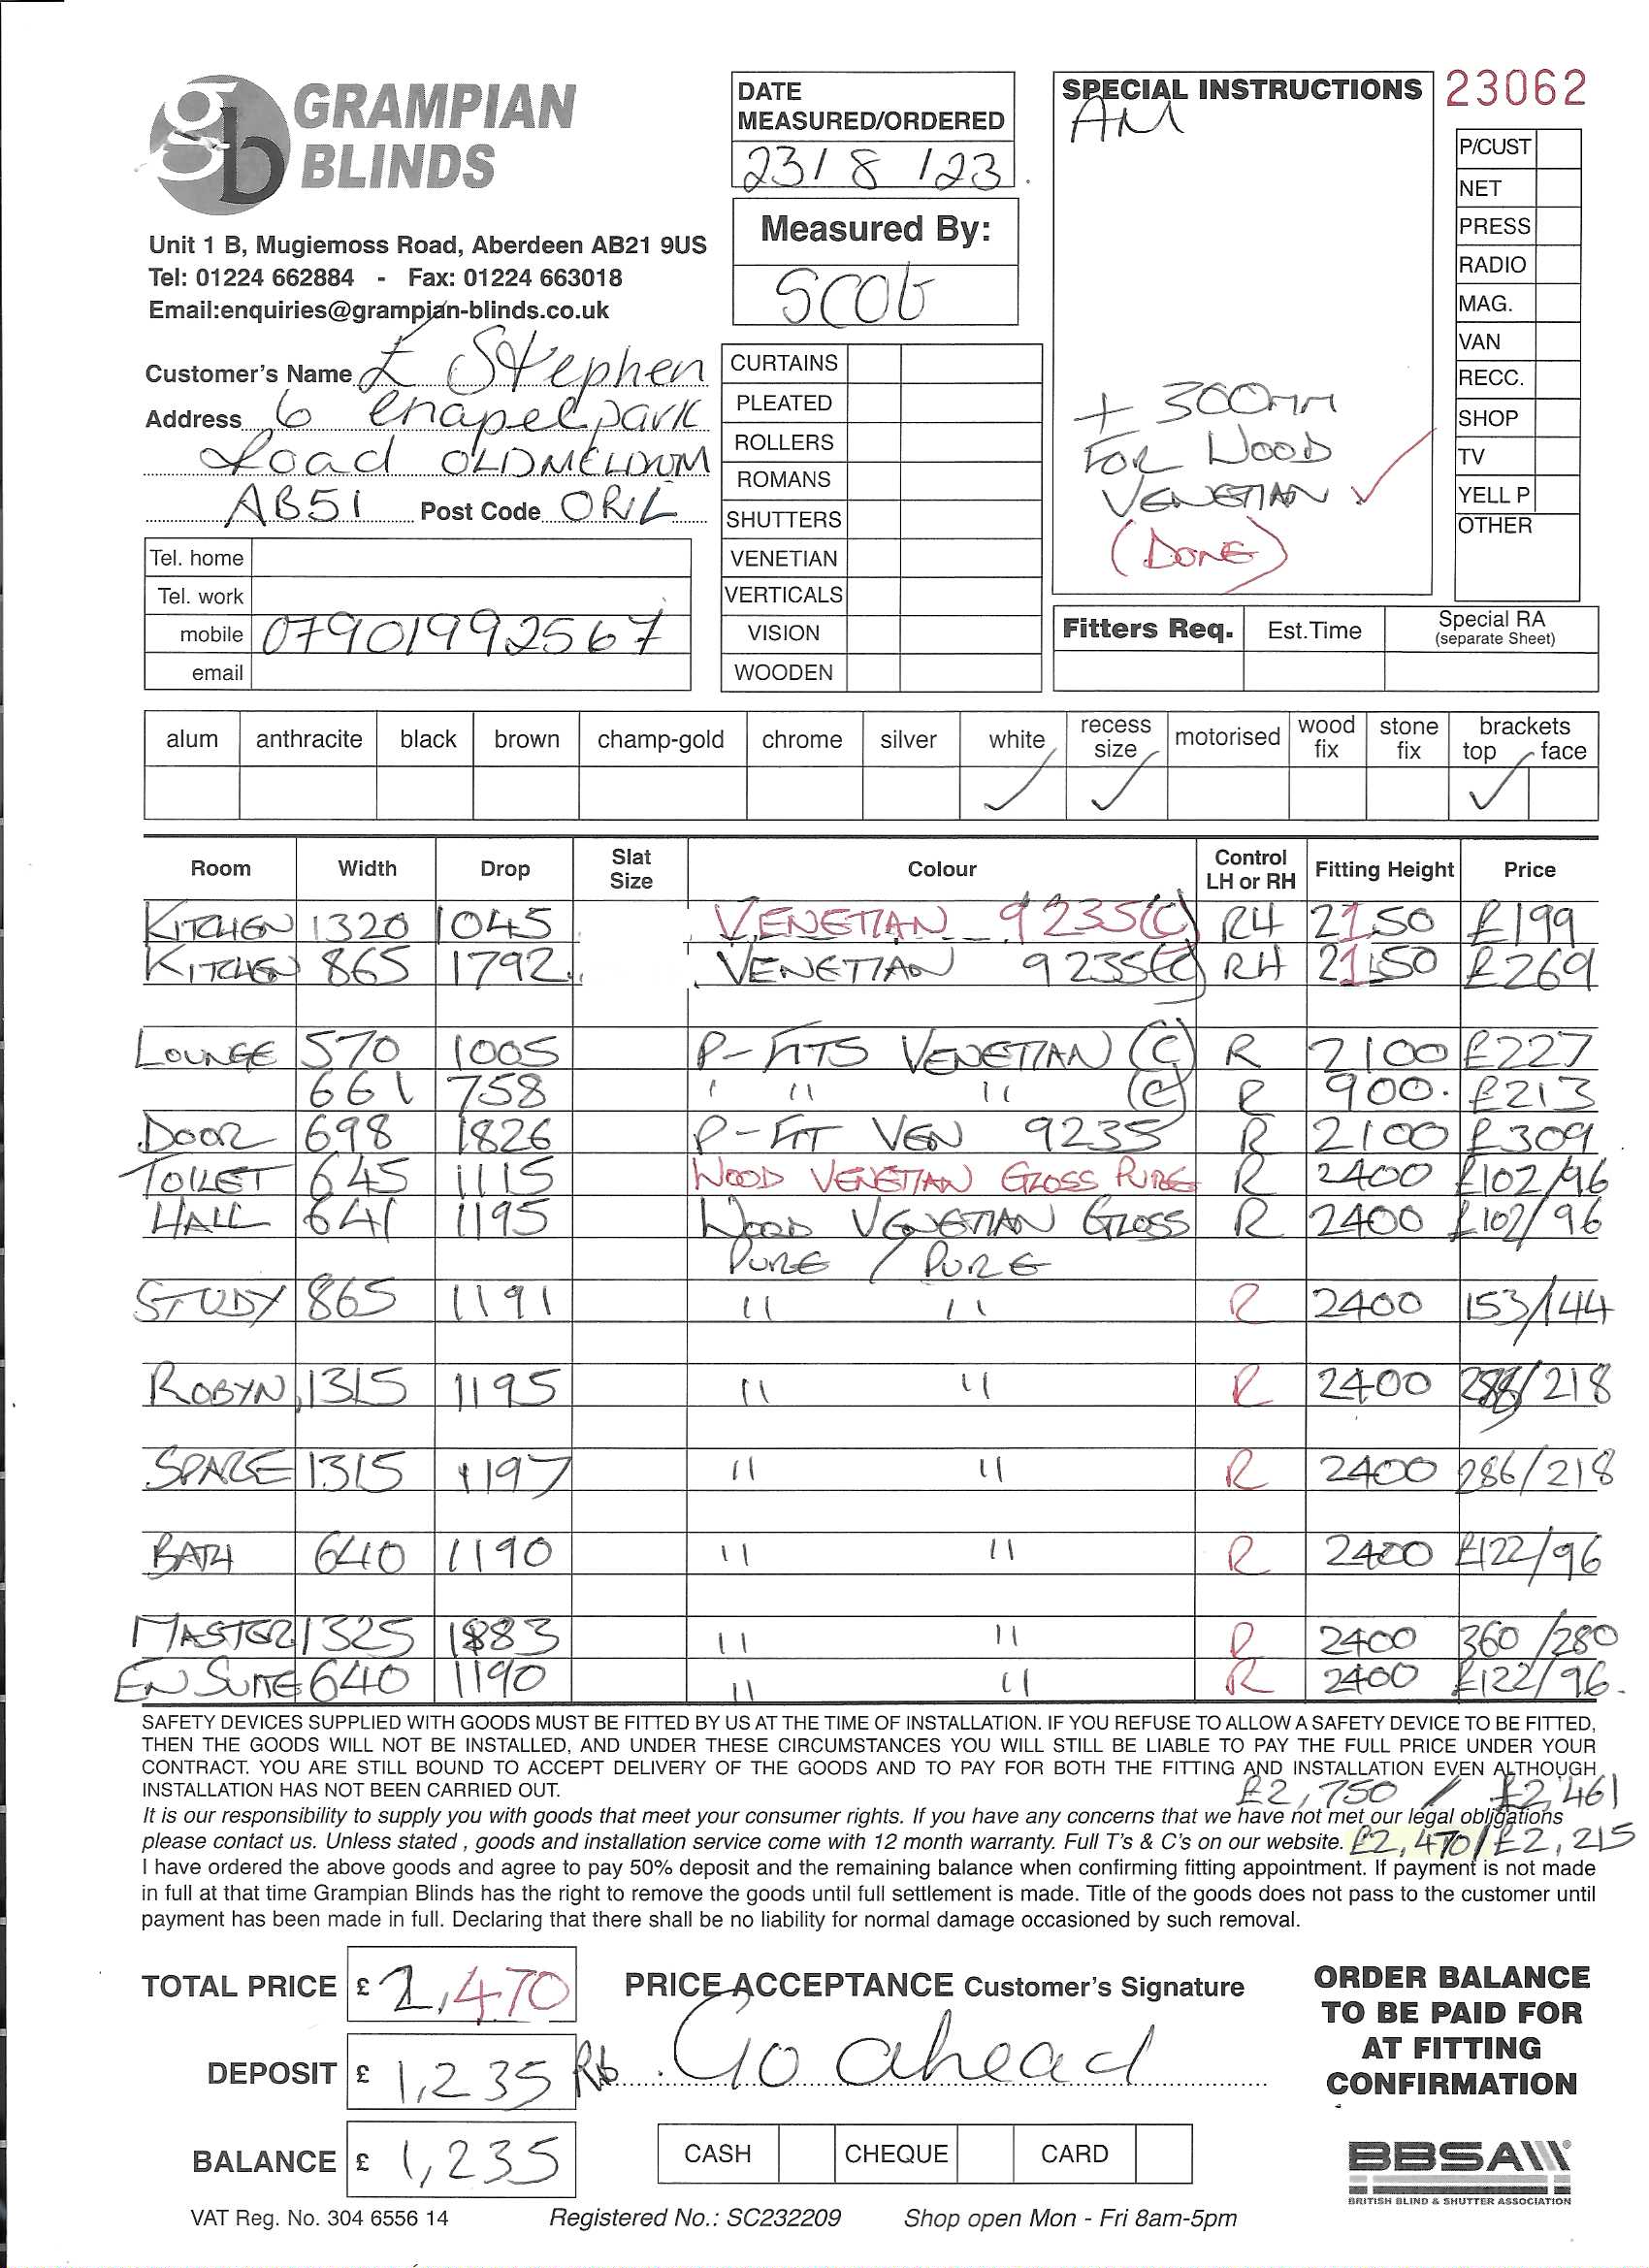 GRAMPIAN
BLINDS
Unit 1 B, Mugiemoss Road, Aberdeen AB21 9US
Tel: 01224 662884 - Fax: 01224 663018
Email:enquiries@grampian-blinds.co.uk
DATE
MEASURED/ORDERED
23/8/23
Measured By:
SPECIAL INSTRUCTIONS 23062
AM
+ 300mm
FOR WOOD
VENETIAN ✓
(DONE)
P/CUST
NET
PRESS
RADIO
MAG.
VAN
RECC.
SHOP
TV
YELL P
OTHER
Customer's Name Stephen
Address 6 Chapelpark
Road OLDMELDRUM
AB51 Post Code
Tel. home
Tel. work
mobile 07901992567
email
CURTAINS
PLEATED
ROLLERS
ROMANS
SHUTTERS
VENETIAN
VERTICALS
VISION
WOODEN
Fitters Req. Est.Time Special RA
(separate Sheet)
alum anthracite black brown champ-gold chrome silver white recess size motorised wood fix stone fix brackets top face
✓ ✓ ✓
Room Width Drop Slat Size Colour Control LH or RH Fitting Height Price
KITCHEN 1320 1045 VENETIAN 9235(C) RH 2150 £199
KITCHEN 865 1792 VENETIAN 9235(C) RH 2150 £269
LOUNGE 570 1005 P-FITS VENETIAN (C) R 2100 £227
661 758 " " " (C) R 900. £213
DOOR 698 1826 P-FIT VEN 9235 R 2100 £309
TOILET 645 1115 WOOD VENETIAN GLOSS PURE R 2400 £102/96
HALL 641 1195 WOOD VENETIAN GLOSS R 2400 £102/96
PURE / PURE
STUDY 865 1191 " " R 2400 153/144
ROBYN 1315 1195 " " R 2400 /218
SPARE 1315 1197 " " R 2400 286/218
BATH 640 1190 " " R 2400 £122/96
MASTER 1325 1883 " " R 2400 360/280
EN SUITE 640 1190 " " R 2400 £122/96.
SAFETY DEVICES SUPPLIED WITH GOODS MUST BE FITTED BY US AT THE TIME OF INSTALLATION. IF YOU REFUSE TO ALLOW A SAFETY DEVICE TO BE FITTED,
THEN THE GOODS WILL NOT BE INSTALLED, AND UNDER THESE CIRCUMSTANCES YOU WILL STILL BE LIABLE TO PAY THE FULL PRICE UNDER YOUR
CONTRACT. YOU ARE STILL BOUND TO ACCEPT DELIVERY OF THE GOODS AND TO PAY FOR BOTH THE FITTING AND INSTALLATION EVEN ALTHOUGH
INSTALLATION HAS NOT BEEN CARRIED OUT. £2,750 / £2,461
It is our responsibility to supply you with goods that meet your consumer rights. If you have any concerns that we have not met our legal obligations
please contact us. Unless stated , goods and installation service come with 12 month warranty. Full T's & C's on our website. £2,470/£2,215
I have ordered the above goods and agree to pay 50% deposit and the remaining balance when confirming fitting appointment. If payment is not made
in full at that time Grampian Blinds has the right to remove the goods until full settlement is made. Title of the goods does not pass to the customer until
payment has been made in full. Declaring that there shall be no liability for normal damage occasioned by such removal.
TOTAL PRICE £ 2,470 PRICE ACCEPTANCE Customer's Signature
DEPOSIT £ 1,235 Go ahead
BALANCE £ 1,235 CASH CHEQUE CARD
ORDER BALANCE
TO BE PAID FOR
AT FITTING
CONFIRMATION
BBSA
BRITISH BLIND & SHUTTER ASSOCIATION
VAT Reg. No. 304 6556 14 Registered No.: SC232209 Shop open Mon - Fri 8am-5pm